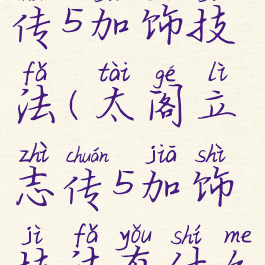 传5加饰技
fǎ tài gé lì
法(太阁立
zhì chuán jiā shì
志传5加饰
jì fǎ yǒu shí me